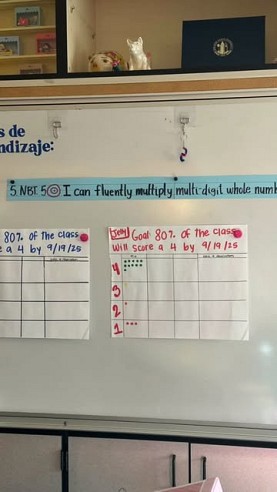 s de
ndizaje:
5.NBT.5 I can fluently multiply multi-digit whole numb
80% of the class
e a 4 by 9/19/25
Jelly Goal 80% of the class
will score a 4 by 9/19/25
4
3
2
1